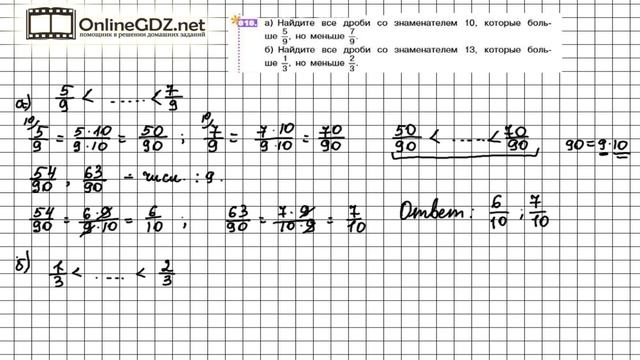 OnlineGDZ.net
помощник в решении домашних заданий
818. а) Найдите все дроби со знаменателем 10, которые боль-
ше 5/9, но меньше 7/9.
б) Найдите все дроби со знаменателем 13, которые боль-
ше 1/3, но меньше 2/3.
а) 5/9 < ...... < 7/9
10) 5/9 = 5·10/9·10 = 50/90 ; 10) 7/9 = 7·10/9·10 = 70/90 50/90 < ...... < 70/90 90 = 9·10
54/90 , 63/90 – числ. : 9.
54/90 = 6·9/9·10 = 6/10 ; 63/90 = 7·9/10·9 = 7/10 Ответ: 6/10 ; 7/10
б) 1/3 < ..... < 2/3